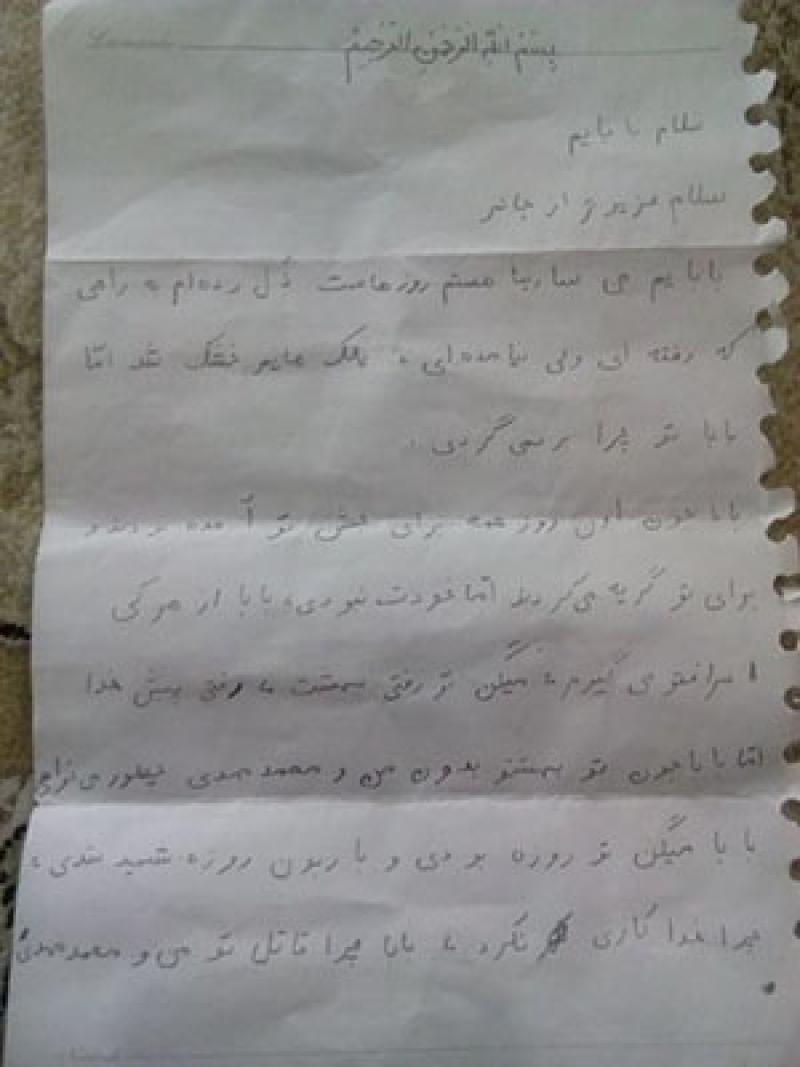 بسم الله الرحمن الرحیم
سلام بابایم
سلام عزیزتر از جانم
بابایم من سارینا هستم روزهاست زُل زده‌ام به راهی
که رفته ای ولی نیامده‌ای، پلک هایم خشک شد امّا
بابا تو چرا برنمی‌گردی.
باباجون اون روز همه برای تو آمده بودند و
برای تو گریه می‌کردند امّا خودت نبودی، بابا از هرکی
سراغتو می گیرم میگن تو رفتی بهشت، رفتی پیش خدا
امّا باباجون تو بهشتو بدون من و محمدمهدی چطوری می‌خوای
بابا میگن تو روزه بودی و با زبون روزه شهید شدی،
چرا خدا کاری نکرد، بابا چرا قاتل تو من و محمدمهدی